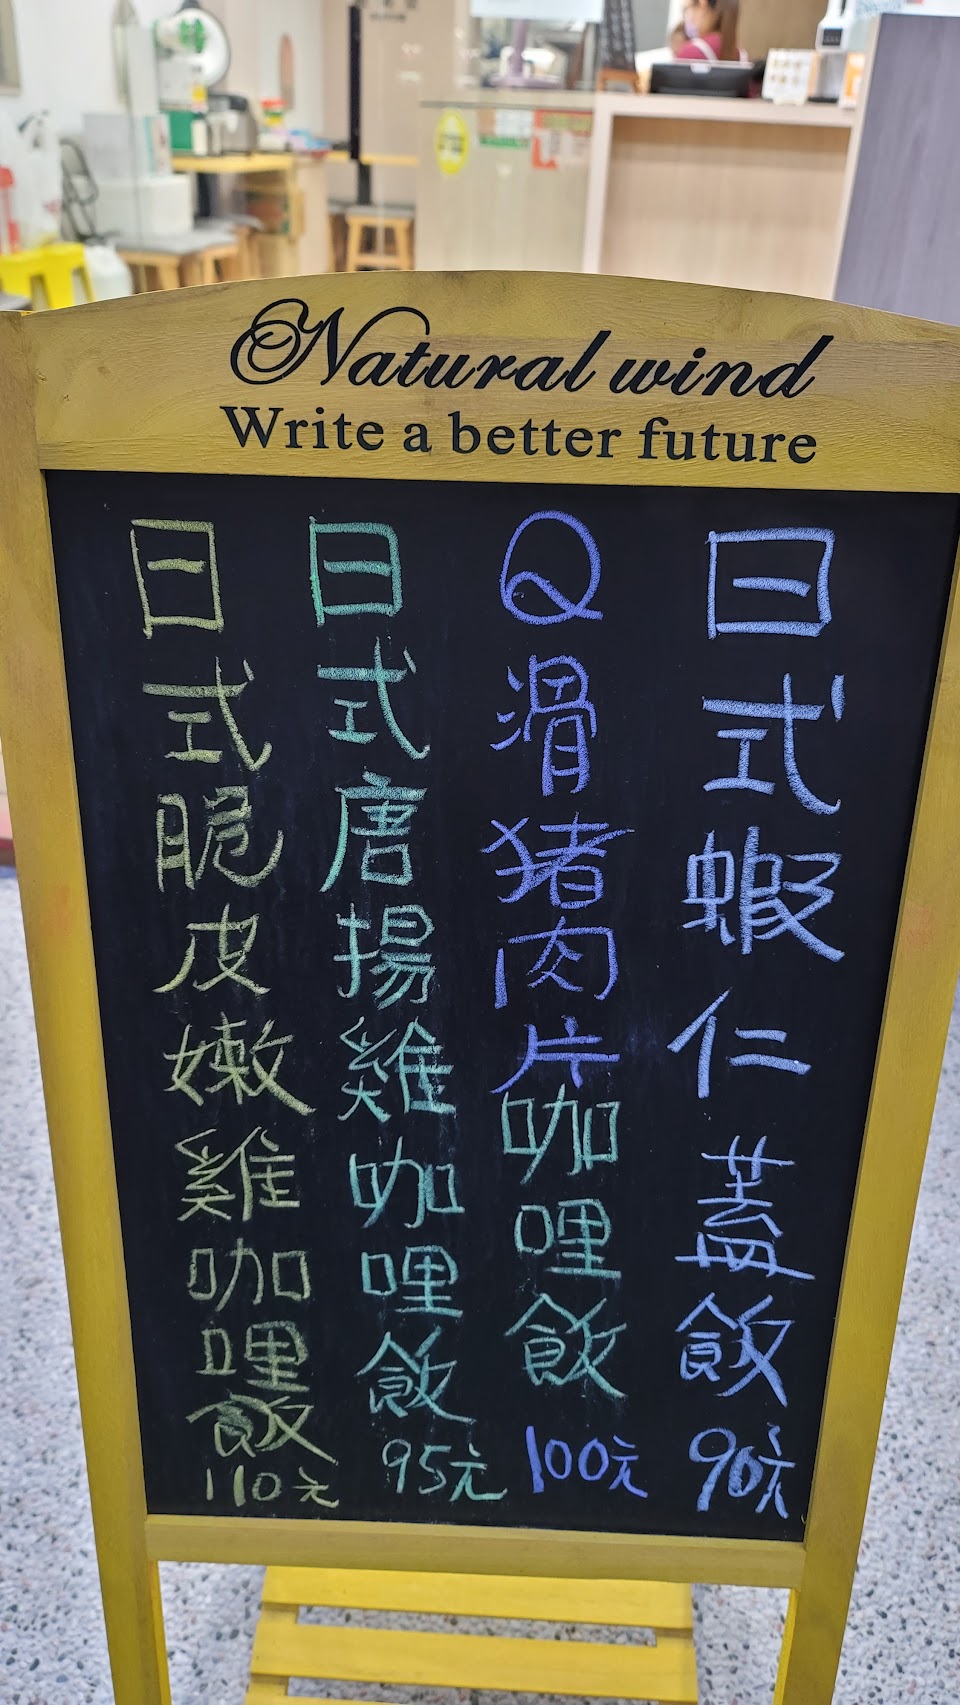 Natural wind
Write a better future
日式蝦仁蓋飯90元
Q滑豬肉片咖哩飯100元
日式唐揚雞咖哩飯95元
日式脆皮嫩雞咖哩飯110元